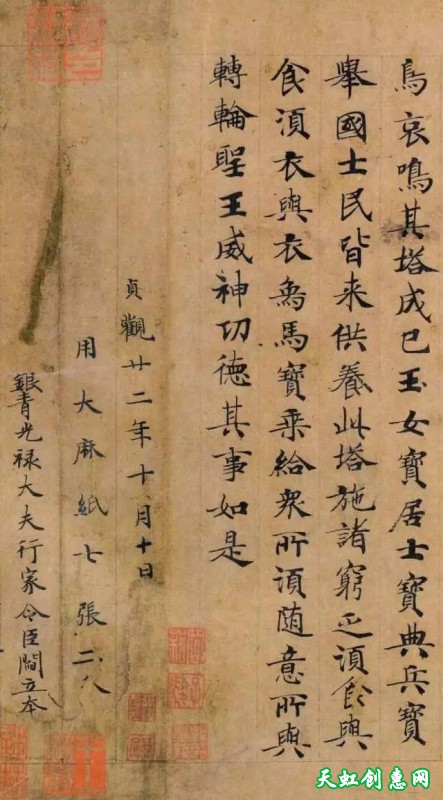 鳥哀鳴其塔成已玉女寶居士寶典兵寶
舉國士民皆来供養此塔施諸窮乏湏食與
食湏衣與衣象馬寶乘給衆所湏随意所與
轉輪聖王威神功德其事如是
貞觀廿二年十月十日
用大麻紙七張二分
銀青光禄大夫行家令臣閻立本
天虹创意网